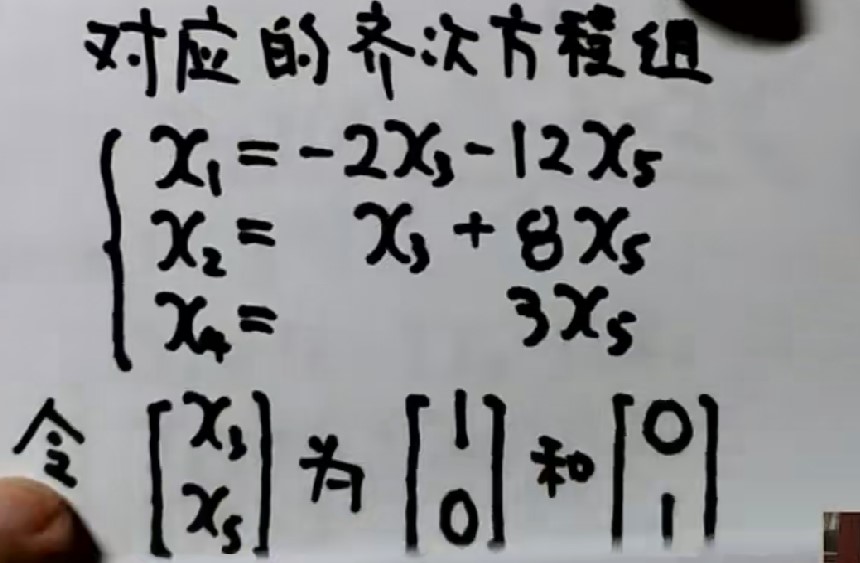 对应的齐次方程组
x₁ = -2x₃ - 12x₅
x₂ = x₃ + 8x₅
x₄ = 3x₅
令 [x₃ x₅] 为 [1 0] 和 [0 1]